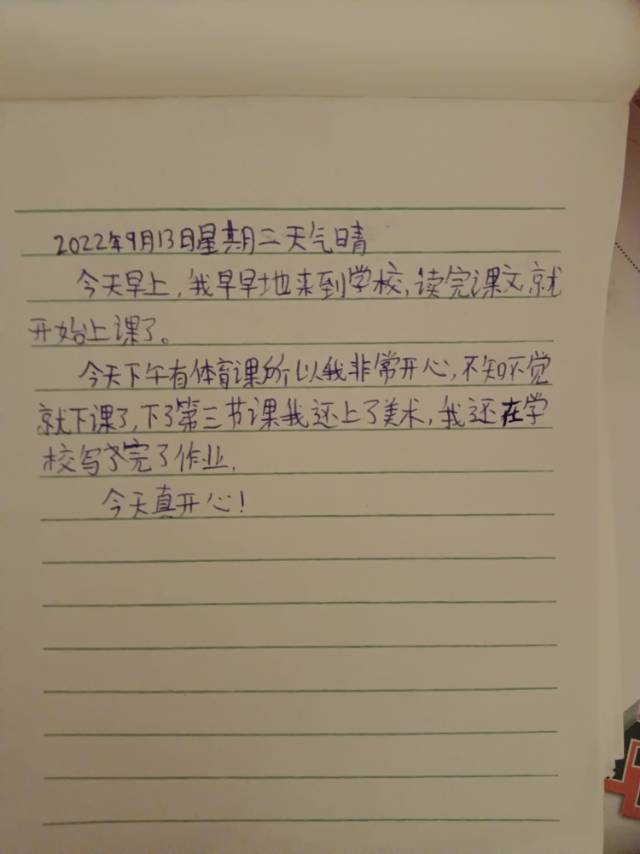 2022年9月13日星期二天气晴
今天早上，我早早地来到学校，读完课文，就
开始上课了。
今天下午有体育课所以我非常开心，不知不觉
就下课了，下了第三节课我还上了美术，我还在学
校写完了作业.
今天真开心！